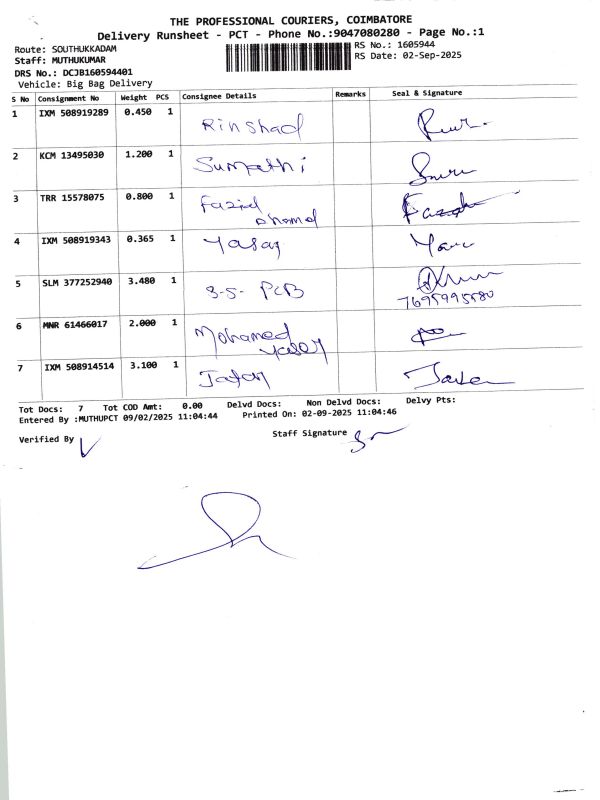 THE PROFESSIONAL COURIERS, COIMBATORE
Delivery Runsheet - PCT - Phone No.:9047080280 - Page No.:1
Route: SOUTHUKKADAM RS No.: 1605944
Staff: MUTHUKUMAR RS Date: 02-Sep-2025
DRS No.: DCJB160594401
Vehicle: Big Bag Delivery
S No Consignment No Weight PCS Consignee Details Remarks Seal & Signature
1 IXM 508919289 0.450 1 Rinshad
2 KCM 13495030 1.200 1 Sumathi
3 TRR 15578075 0.800 1 Fazid
Ahamed
4 IXM 508919343 0.365 1 Yasar
5 SLM 377252940 3.480 1 S-S- PCB
7695995580
6 MNR 61466017 2.000 1 Mohamed
7 IXM 508914514 3.100 1
Tot Docs: 7 Tot COD Amt: 0.00 Delvd Docs: Non Delvd Docs: Delvy Pts:
Entered By :MUTHUPCT 09/02/2025 11:04:44 Printed On: 02-09-2025 11:04:46
Verified By Staff Signature